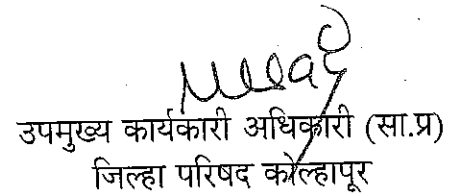 उपमुख्य कार्यकारी अधिकारी (सा.प्र)
जिल्हा परिषद कोल्हापूर